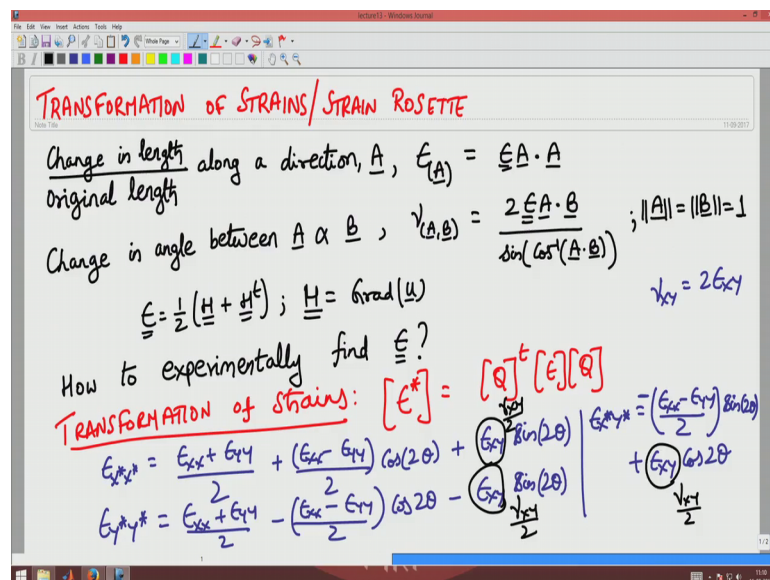 lecture13 - Windows Journal
File Edit View Insert Actions Tools Help
Whole Page
B I
TRANSFORMATION OF STRAINS/ STRAIN ROSETTE
Note Title
11-09-2017
Change in length / Original length along a direction, A, ϵ_(A) = ϵA · A
Change in angle between A & B, γ_(A,B) = 2ϵA·B / sin(cos⁻¹(A·B)) ; ||A||=||B||=1
γxy = 2ϵxy
ϵ = 1/2 (H + H^t) ; H = Grad(u)
How to experimentally find ϵ?
TRANSFORMATION of strains: [ϵ*] = [Q]^t [ϵ][Q]
ϵx*x* = (ϵxx + ϵyy)/2 + (ϵxx - ϵyy)/2 cos(2θ) + ϵxy sin(2θ)
γxy/2
ϵy*y* = (ϵxx + ϵyy)/2 - (ϵxx - ϵyy)/2 cos2θ - ϵxy sin(2θ)
γxy/2
ϵx*y* = -(ϵxx - ϵyy)/2 sin(2θ)
+ ϵxy cos2θ
γxy/2
1
1/2
11:10